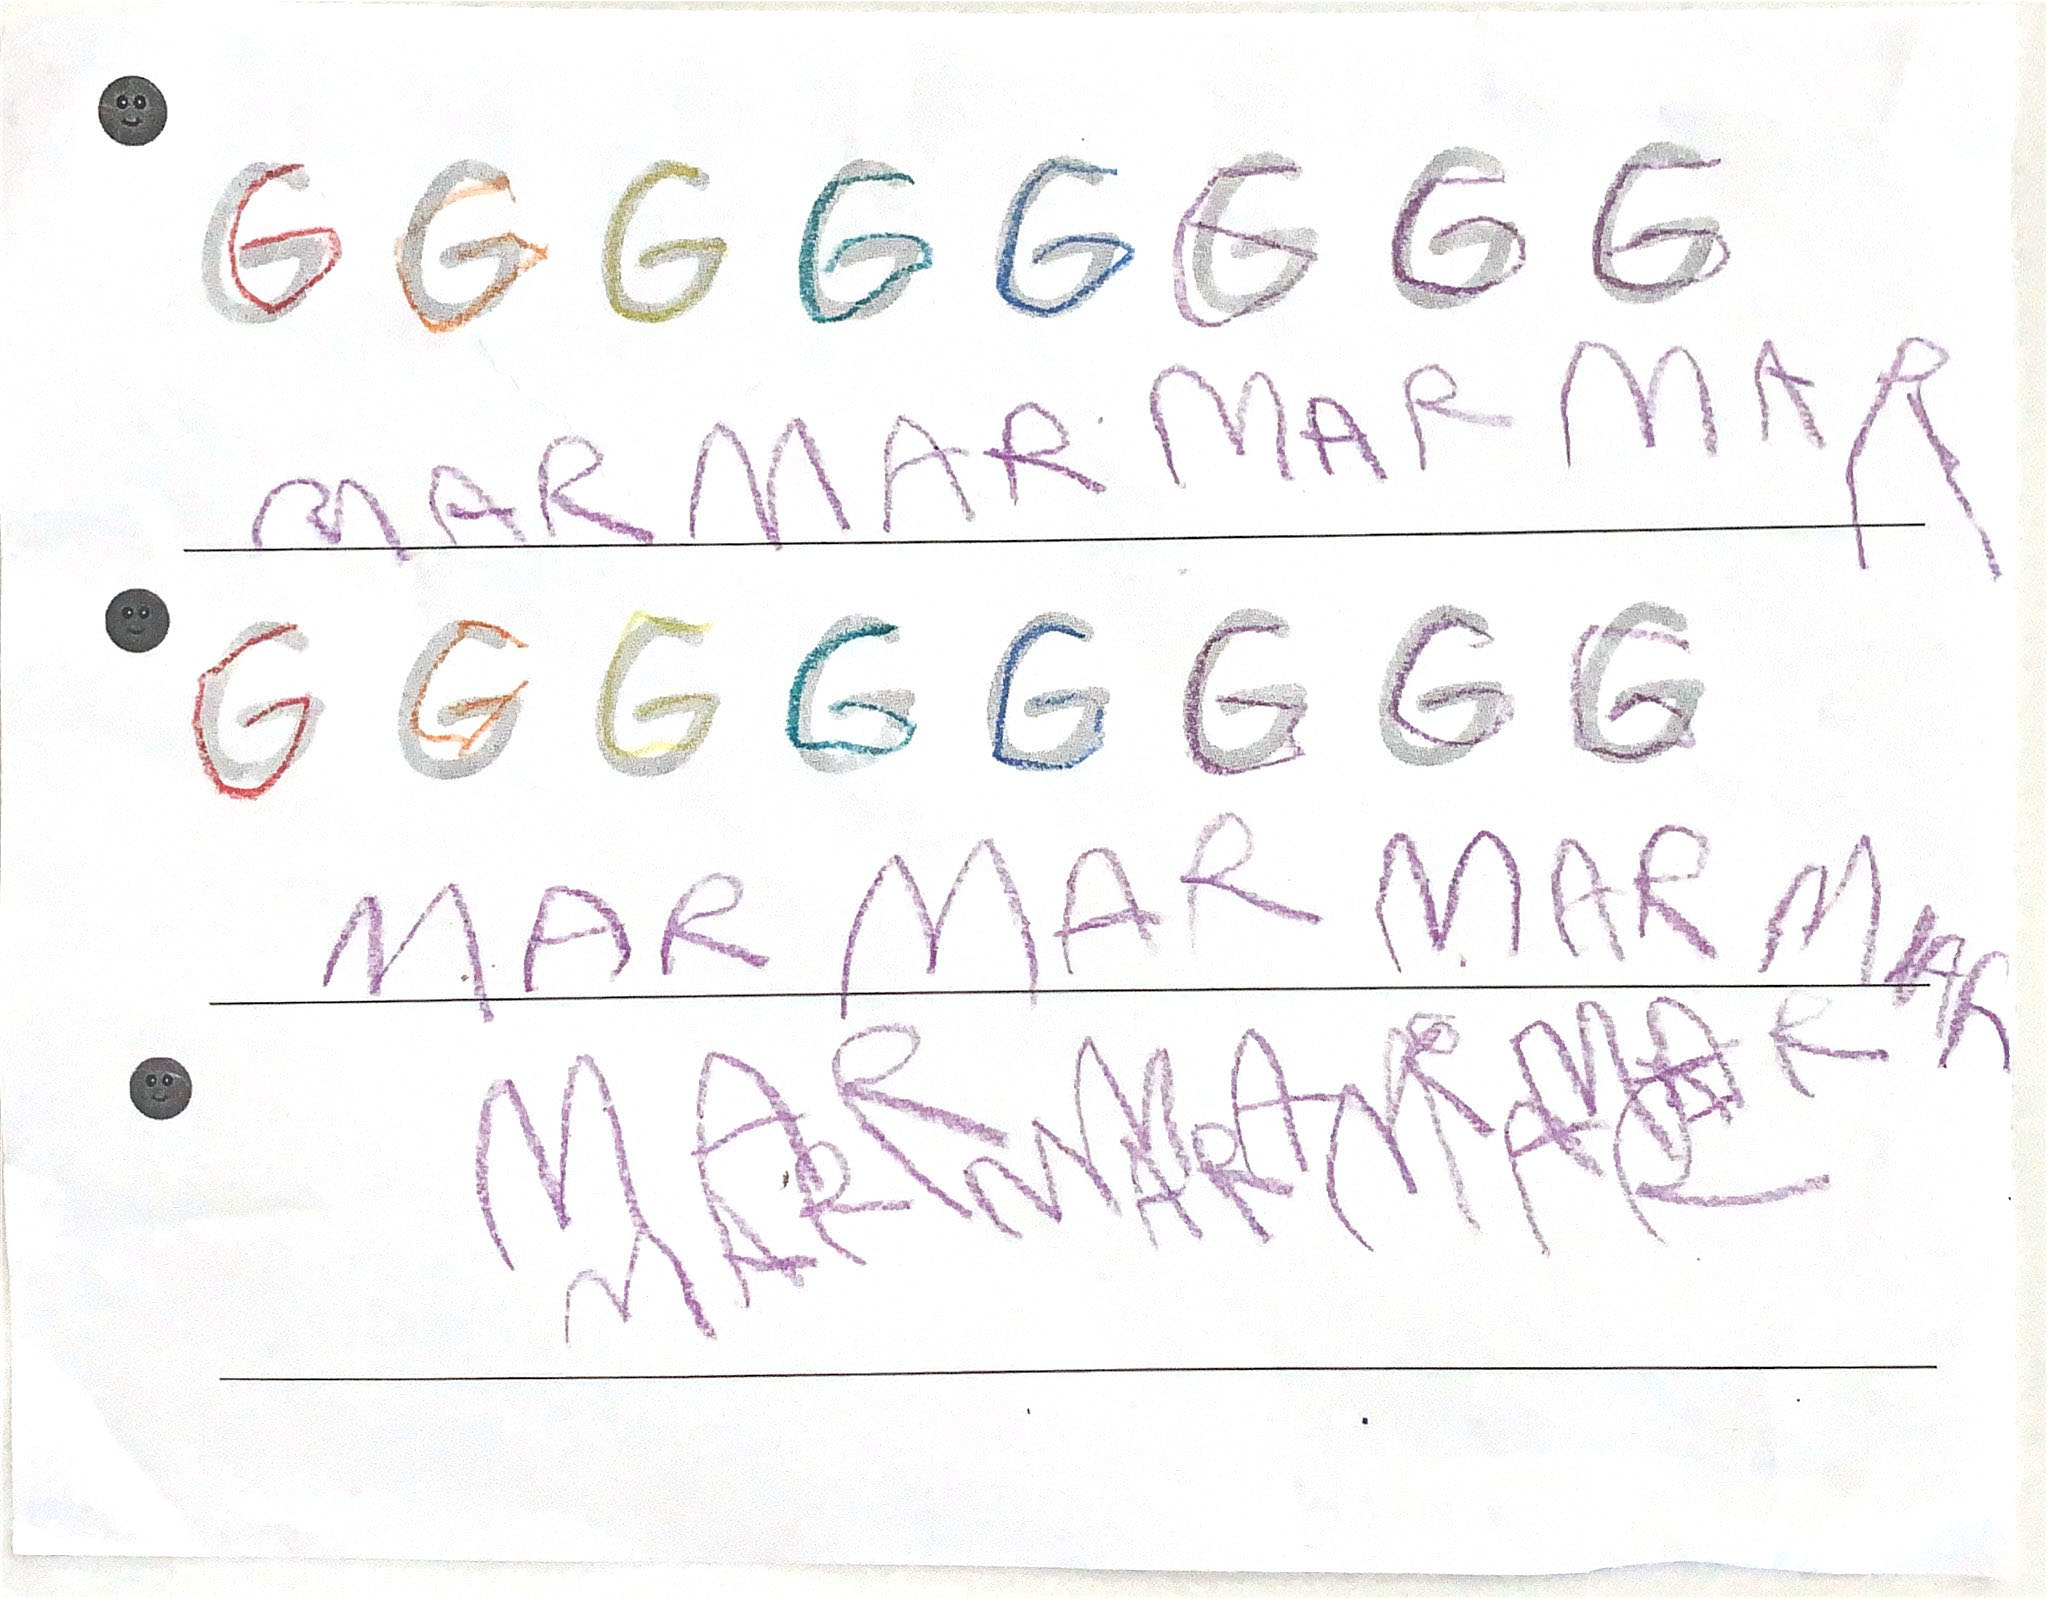 G G G G G G G G
MAR MAR MAR MAR
G G G G G G G G
MAR MAR MAR MAR
MAR MAR MAR
MAR MAR MAR